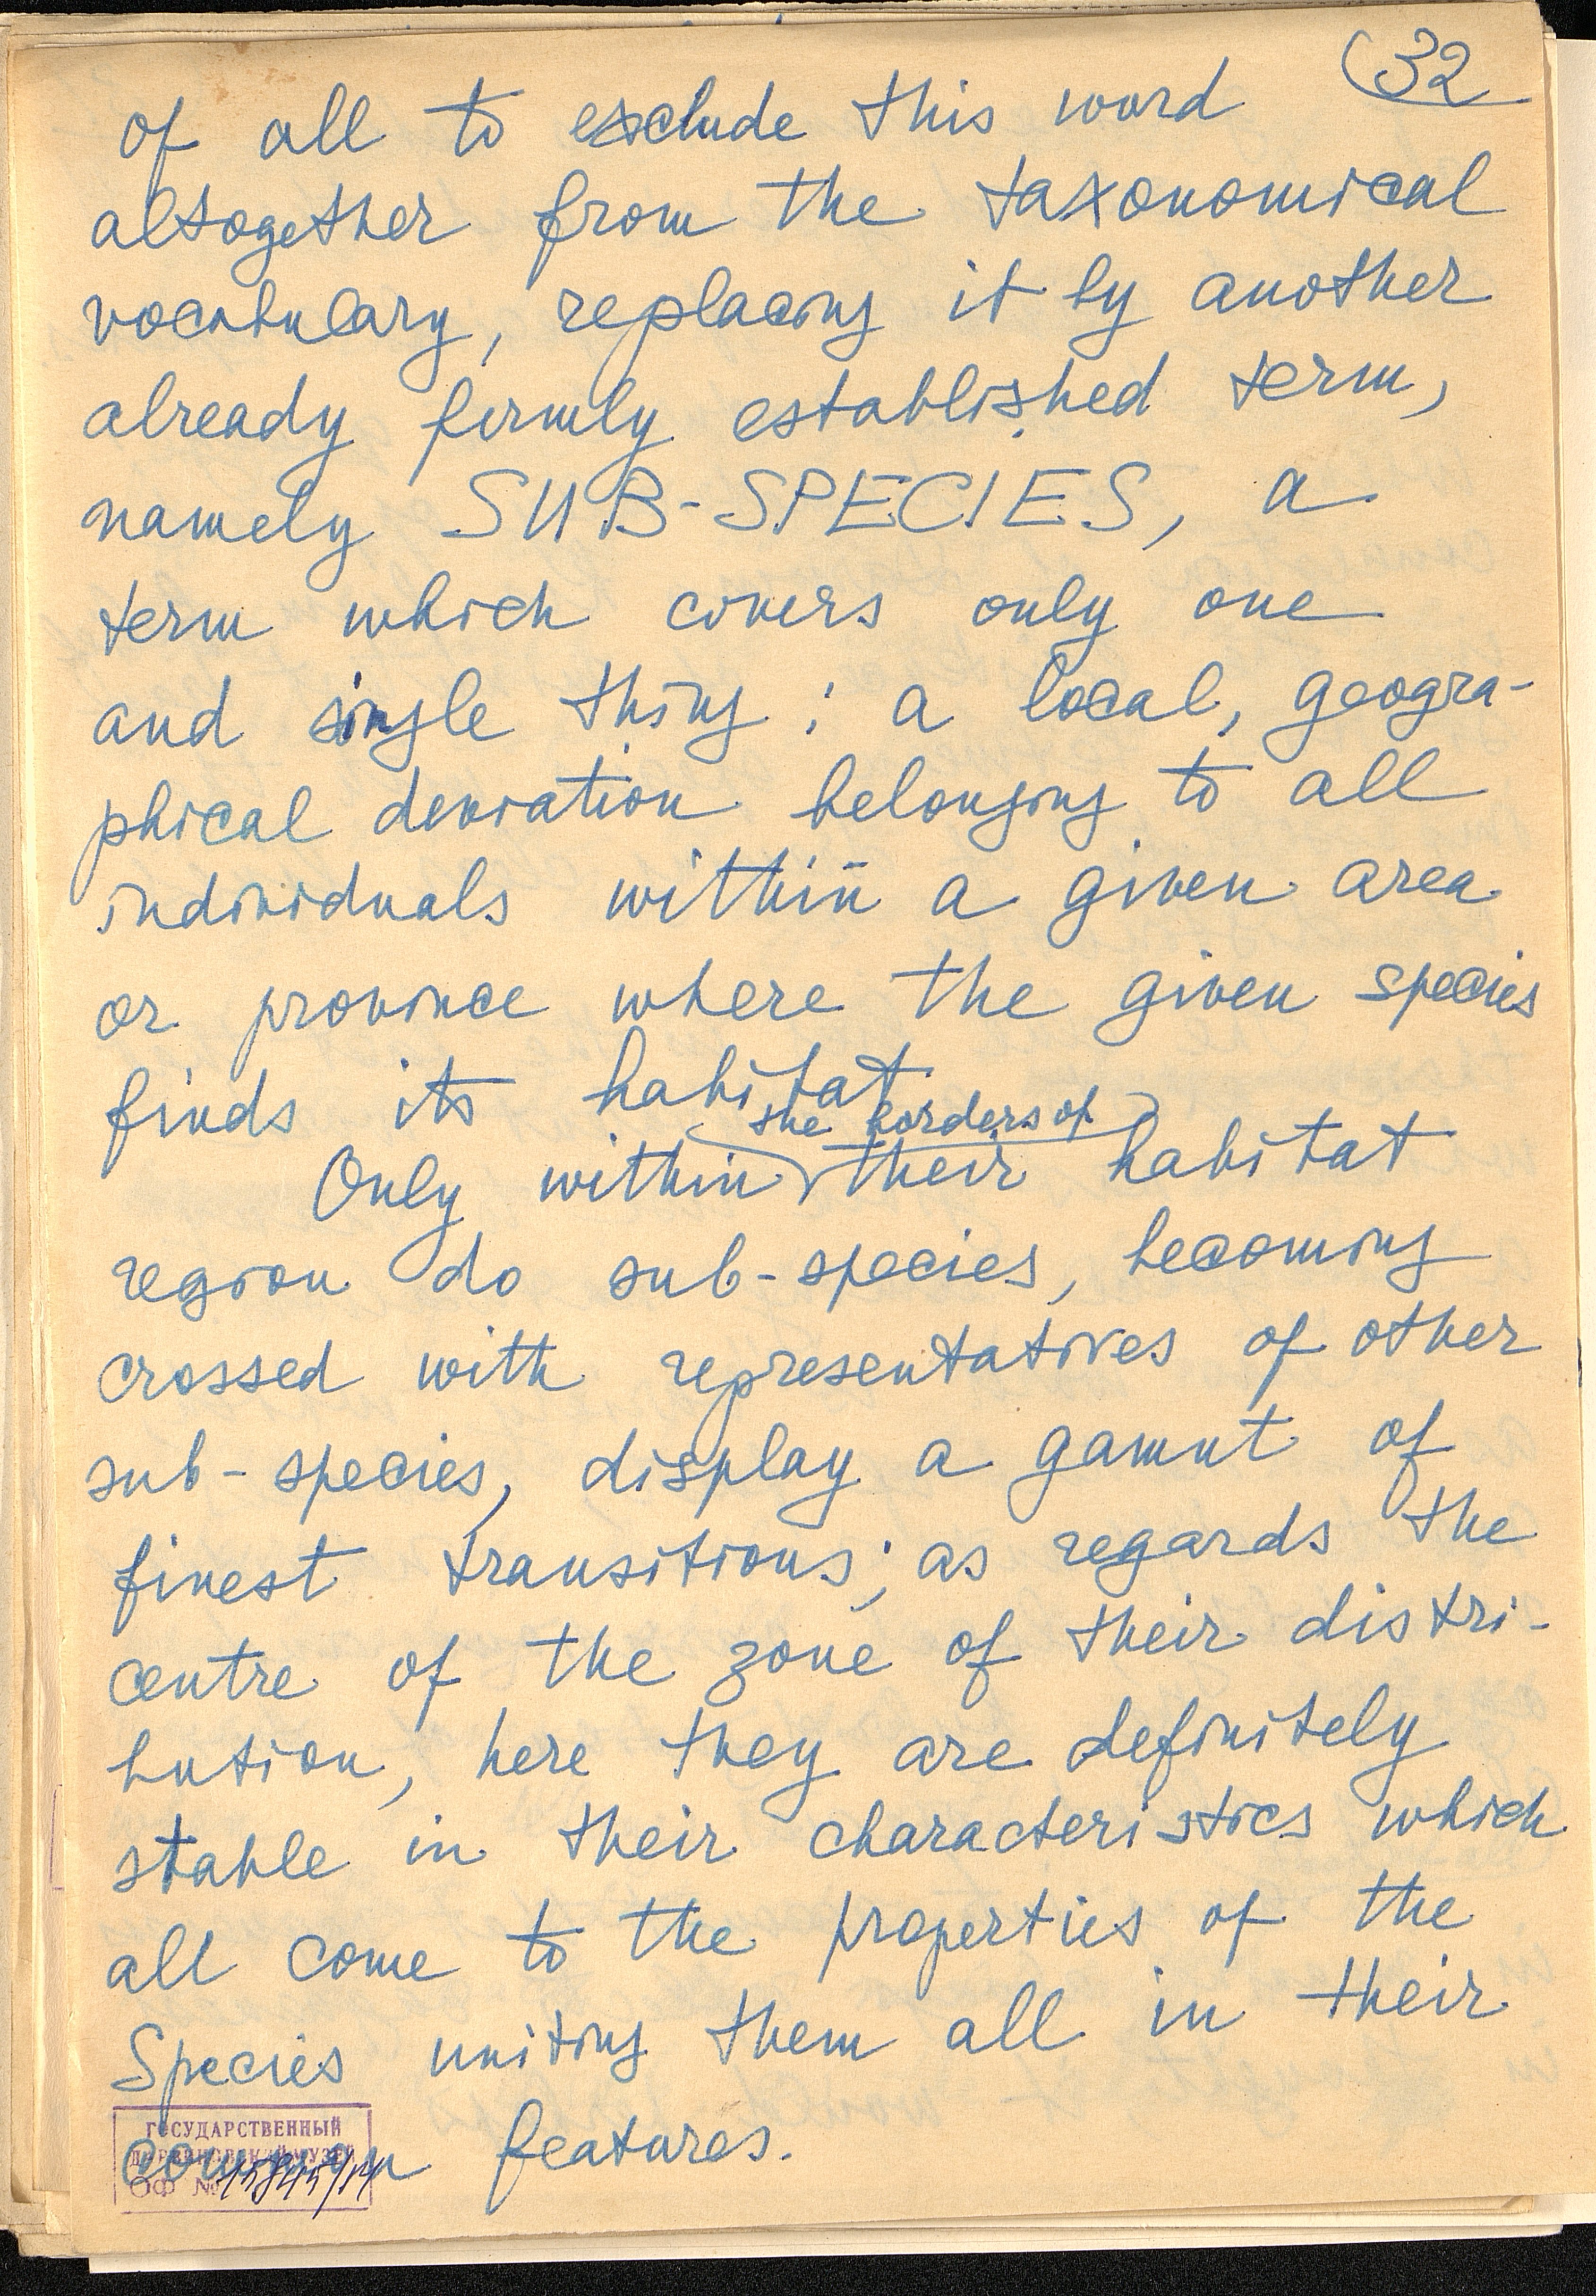 32
of all to exclude this word
altogether from the taxonomical
vocabulary, replacing it by another
already firmly established term,
namely SUB-SPECIES, a
term which covers only one
and single thing: a local, geogra-
phical deviation belonging to all
individuals within a given area
or province where the given species
finds its habitat.
the borders of
Only within their habitat
region do sub-species, becoming
crossed with representatives of other
sub-species, display a gamut of
finest transitions; as regards the
centre of the zone of their distri-
bution, here they are definitely
stable in their characteristics which
all come to the properties of the
Species uniting them all in their
common features.
ГОСУДАРСТВЕННЫЙ
ДАРВИНОВСКИЙ МУЗЕЙ
ОФ №